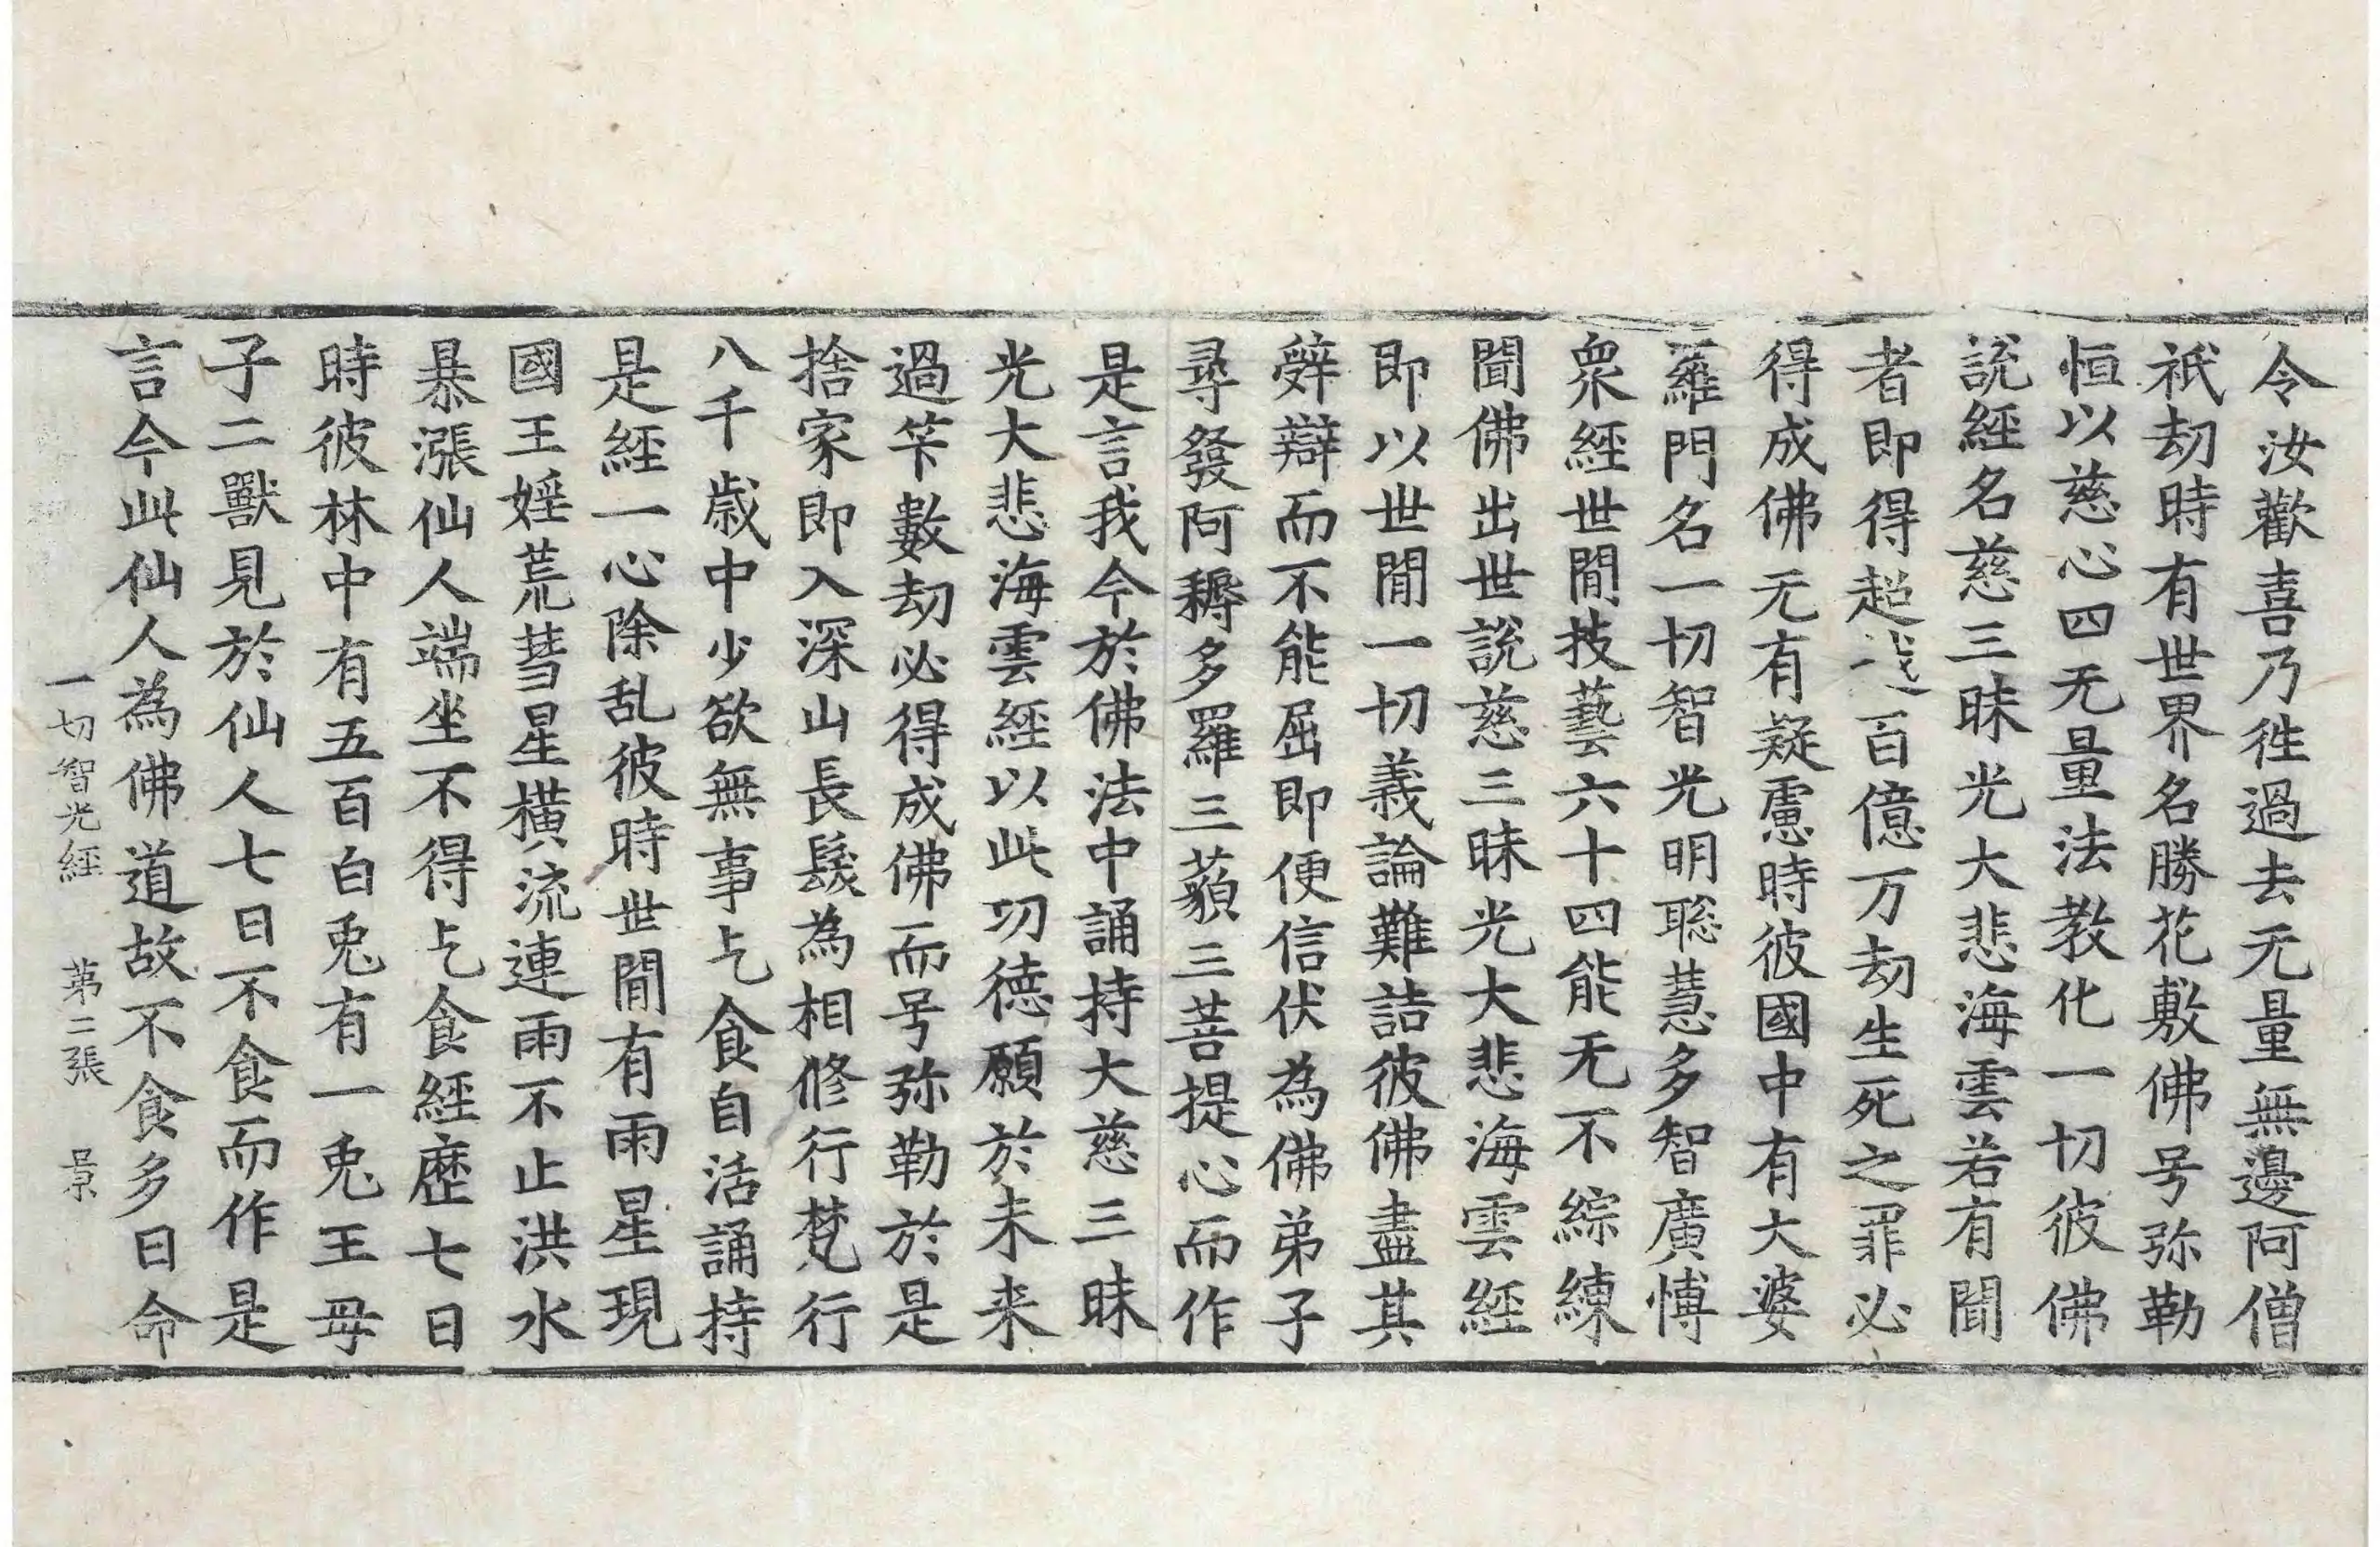 令汝歡喜乃徃過去无量無邊阿僧
祇劫時有世界名勝花敷佛号弥勒
恒以慈心四无量法教化一切彼佛
說經名慈三昧光大悲海雲若有聞
者即得超百億万劫生死之罪必
得成佛无有疑慮時彼國中有大婆
羅門名一切智光明聡慧多智廣博
衆經世閒技藝六十四能无不綜練
聞佛出世說慈三昧光大悲海雲經
即以世閒一切義論難詰彼佛盡其
辝辯而不能屈即便信伏為佛弟子
尋發阿耨多羅三藐三菩提心而作
是言我今於佛法中誦持大慈三昧
光大悲海雲經以此功德願於未来
過筭數劫必得成佛而号弥勒於是
捨家即入深山長髮為相修行梵行
八千歲中少欲無事乞食自活誦持
是經一心除乱彼時世閒有雨星現
國王婬荒彗星橫流連雨不止洪水
暴漲仙人端坐不得乞食經歷七日
時彼林中有五百白兎有一兎王母
子二獸見於仙人七日不食而作是
言今此仙人為佛道故不食多日命
一切智光經 第二張 景